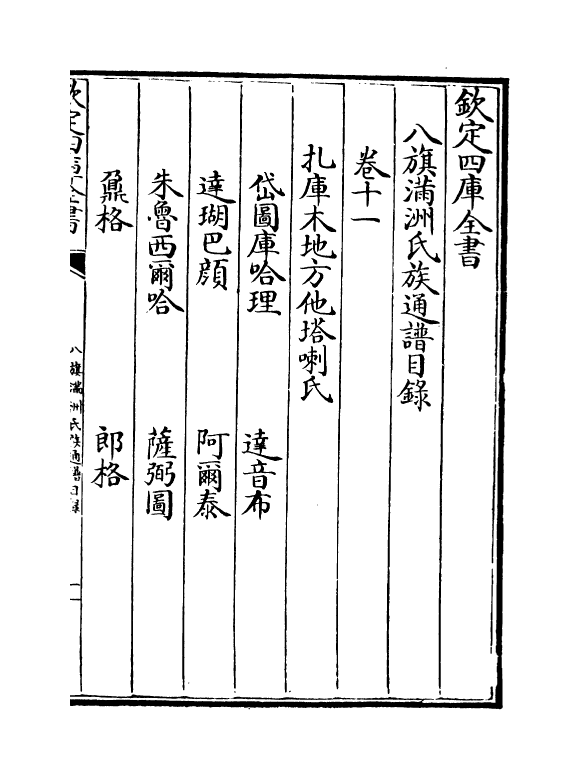 欽定四庫全書
八旗滿洲氏族通譜目錄
卷十一
扎庫木地方他塔喇氏
岱圖庫哈理 達音布
達瑚巴顔 阿爾泰
朱魯西爾哈 薩弼圖
鼐格 郎格
欽定四庫全書
八旗滿洲氏族通譜目録
一